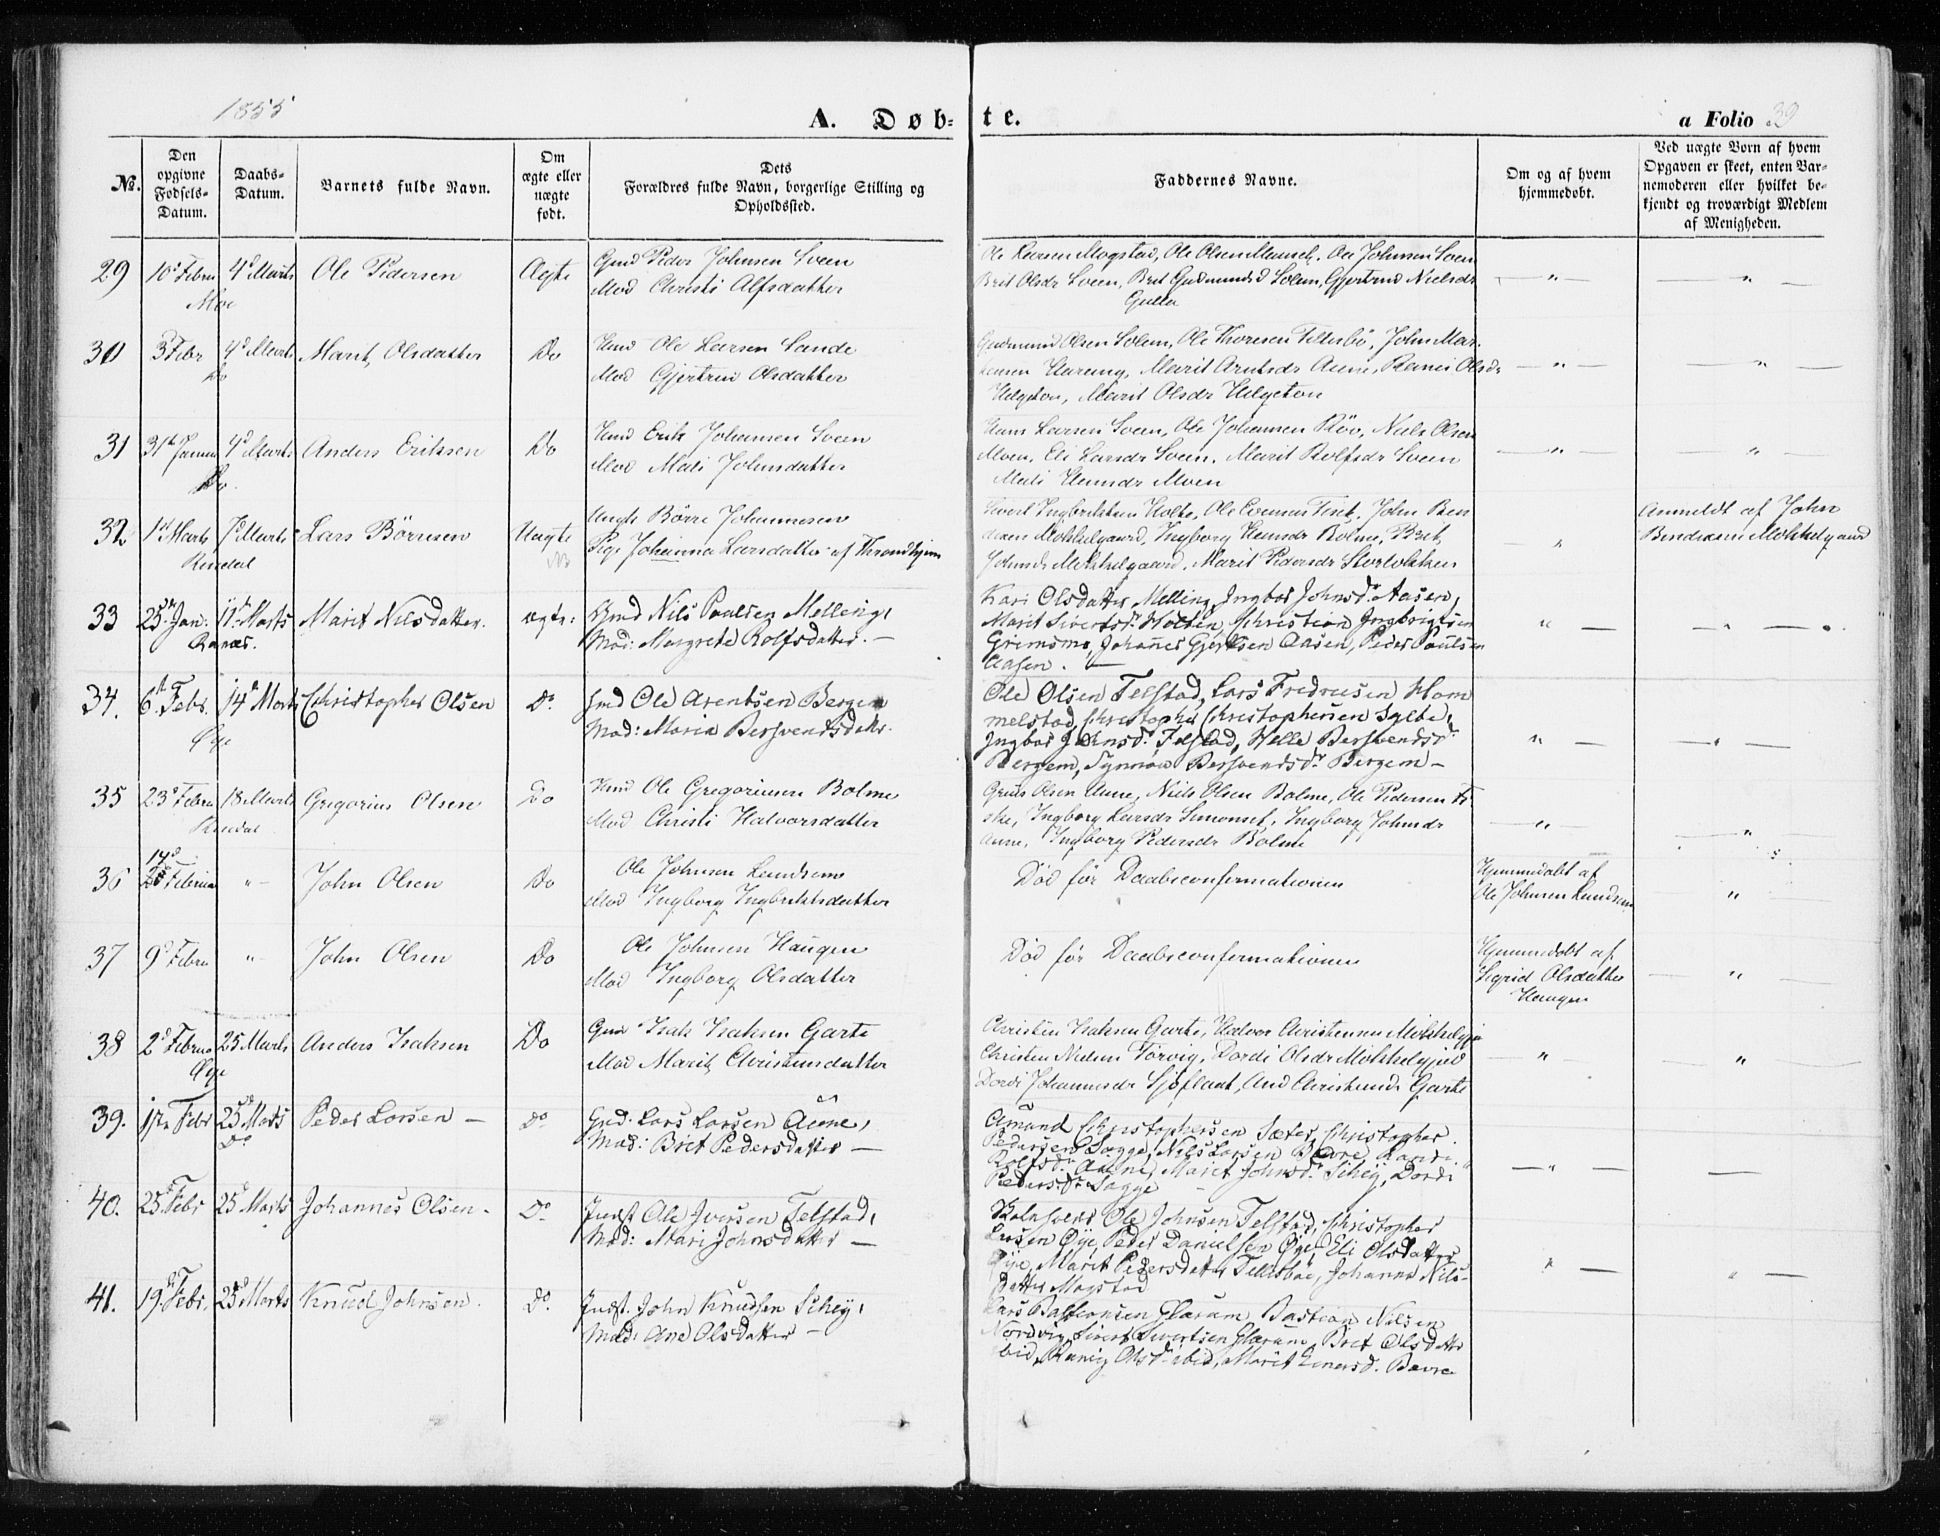 1855
A. Døb-
te.
a Folio 39
No.
Den opgivne Fødsels-Datum.
Daabs-Datum.
Barnets fulde Navn.
Om ægte eller uægte født.
Dets Forældres fulde Navn, borgerlige Stilling og Opholdssted.
Faddernes Navne.
Om og af hvem hjemmedøbt.
Ved uægte Børn af hvem Opgaven er skeet, enten Barnemoderen eller hvilket bekjendt og troværdigt Medlem af Menigheden.
29 10d Febru 4d Marts Ole Pedersen Ægte Gmd Peder Johnsen Sveen
Moe Mod Christi Alfsdatter
Ole Larsen Mogstad, Ole Olsen, Ole Johnsen Sveen
Brit Olsdr Sveen, Brit Gudmundsd Solem, Gjertrud Nielsdr
Gulla
30 3 Febr 4d Marts Marit Olsdatter Do Hmd Ole Larsen Sande
Do Mod Gjertrud Olsdatter
Gudmund Olsen Solem, Ole Thoresen Telsbö, John
Marit Arntsdr Aune, Olsdr
Helgeton, Marit Olsdr Helgeton
31 31te Januar 4d Marts Anders Eriksen Do Hmd Erik Johansen Sveen
Do. Mod Mali Johnsdatter
Hans Larsen Sveen, Ole Johansen Röv, Niels Olsen
Moen, Eli Larsdr Sveen, Marit Rolfsdr Sveen
Mali Hansdr Moen
32 1st Marts 7d Marts Lars Börresen Uægte Ungk Börre Johannesen
Rindal Pige Johanna Larsdatter af Throndhjem
Sivert Ingbrigtsen Holte, Ole Tiset, John Ben
Mokkelgaard, Ingborg Hansdr Bolme, Brit
Johnsdr Mokkelgaard, Marit Pedersdr Storlökken
Anmeldt af John
Bendixen Mokkelgaard
33 25de Jan: 11te Marts Marit Nilsdatter. ægte: Gmd Nils Paulsen Melling,
Ranæs. Mod: Margrete Rolfsdatter. —
Kari Olsdatter Melling, Ingbor Johnsdr Aasen,
Marit Sivertsdr Holten, Christian Ingbrigtsen
Grimsmo, Johannes Gjertsen Aasen, Peder Paulsen
Aasen. —
34. 6te Febr. 14d Marts Christopher Olsen Do. Hmd Ole Arentsen Bergem
Øye Mod: Maria Bersvendsdatr.
Ole Olsen Telstad, Lars Fredriksen Hom
melstad, Christopher Christophersen Sylte,
Ingbor Johnsdr. Telstad, Helle Bersvendsdr.
Bergem, Synnøv Bersvendsdr. Bergem —
35 23d Febru 18 Marts Gregorius Olsen Do Hmd Ole Gregoriusen Bolme
Rindal Mod Christi Halvorsdatter
Olsen Aune, Niels Olsen Bolme, Ole Pedersen Fi
ske, Ingborg Larsdr Simonset, Ingborg Johnsdr
Aune, Ingborg Pedersdr Bolme
36 14d Februar " John Olsen Do Ole Johnsen Landsem
Mod Ingborg Ingbriktsdatter
Död för Daabsconfirmationen
Hjemmedøbt af
Ole Johnsen Landsem
37 9d Febru " John Olsen Do Ole Johnsen Haugen
Mod Ingborg Olsdatter
Död för Daabsconfirmationen
Hjemmedøbt af
Sigrid Olsdatter
Haugen
38 2d Februa 25 Marts Anders Isaksen Do Gmd Isak Isaksen Garte
Øye Mod Marit Christensdatter
Christen Isaksen Garte, Halvor Christensen Mokkelgjer
Christen Nielsen Törvig, Dordi Olsdr Mokkelgjerd
Dordi Johannesdr Sjöflaat, And Christensdr Garte
39. 17de Febr 25de Marts Peder Larsen — Do. Gmd: Lars Larsen Aune,
Do Mod: Brit Pedersdatter —
Amund Christophersen Sæter, Christopher
Pedersen Sagge, Nils Larsen Bævre, Randi
Rolfsdr. Aune, Marit Johnsdr. Schey, Dordi
Pedersdr Sagge
40. 25d Febr 25d Marts Johannes Olsen. Do. Indst Ole Iversen Telstad,
Mod: Mari Johnsdatter —
Ole Johnsen Telstad, Christopher
Larsen Øye, Peder Danielsen Øye, Eli Olsdatter
Øye, Marit Pedersdatter Tellesbøe, Johanna Nils-
datter Mogstad
41. 19de Febr. 25d Marts Knud Johnsen. Do. Indst. John Knudsen Schey,
Mod: Ane Olsdatter —
Lars Bastiansen Glærum, Bastian Nilsen
Nordvig, Sivert Sivertsen Glærum, Brit Olsdatter
ibid, Olsdr ibid, Marit Einersd. Bævre